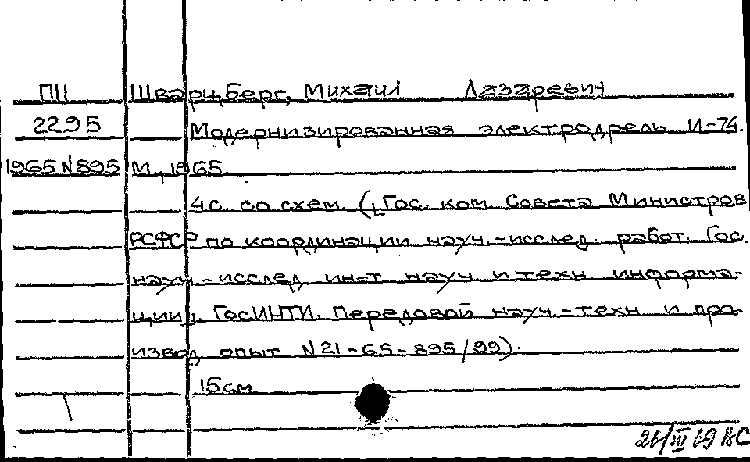 ПН Шварцберг, Михаил Лазаревич
2295 Модернизированная электродрель И-74.
1965 N 895 М., 1965
4 с. со схем. ([Гос. ком. Совета Министров
РСФСР по координации науч.-исслед. работ. Гос.
науч.-исслед. ин-т науч. и техн. информа-
ции]. ГосИНТИ. Передовой науч.-техн. и про-
извод. опыт N 21-65-895/99).
15 см